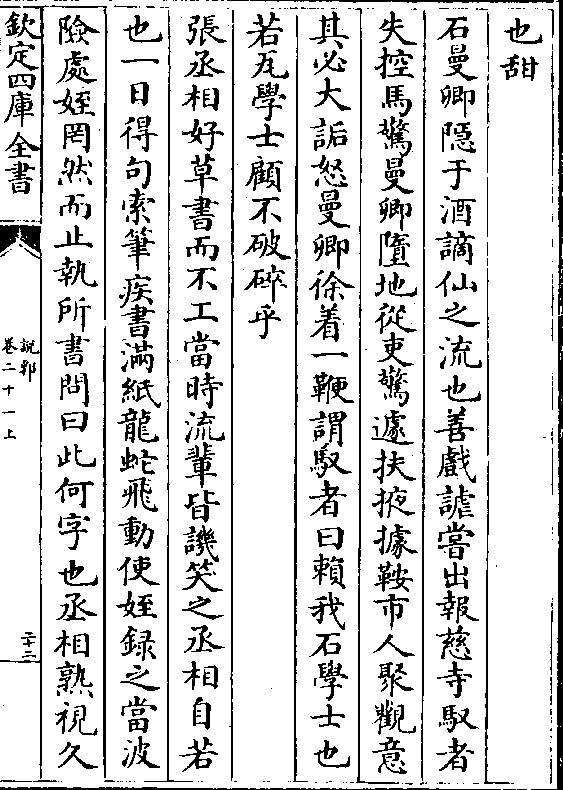 也甜
石曼卿隠于酒謫仙之流也善戲謔嘗出報慈寺馭者
失控馬驚曼卿墮地從吏驚遽扶掖據鞍市人聚觀意
其必大詬怒曼卿徐着一鞭謂馭者曰賴我石學士也
若瓦學士顧不破碎乎
張丞相好草書而不工當時流輩皆譏笑之丞相自若
也一日得句索筆疾書滿紙龍蛇飛動使姪録之當波
險處姪罔然而止執所書問曰此何字也丞相熟視久
欽定四庫全書
說郛
卷二十一上
二十二